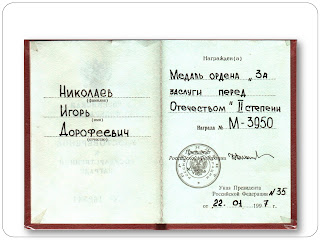 Николаев
(фамилия)
Игорь
(имя)
Дорофеевич
(отчество)
Награжден(а)
Медаль ордена „За
заслуги перед
Отечеством" II степени
Награда № М-3950
Президент
Российской Федерации
Указ Президента
Российской Федерации N35
от 22.01 1997 г.